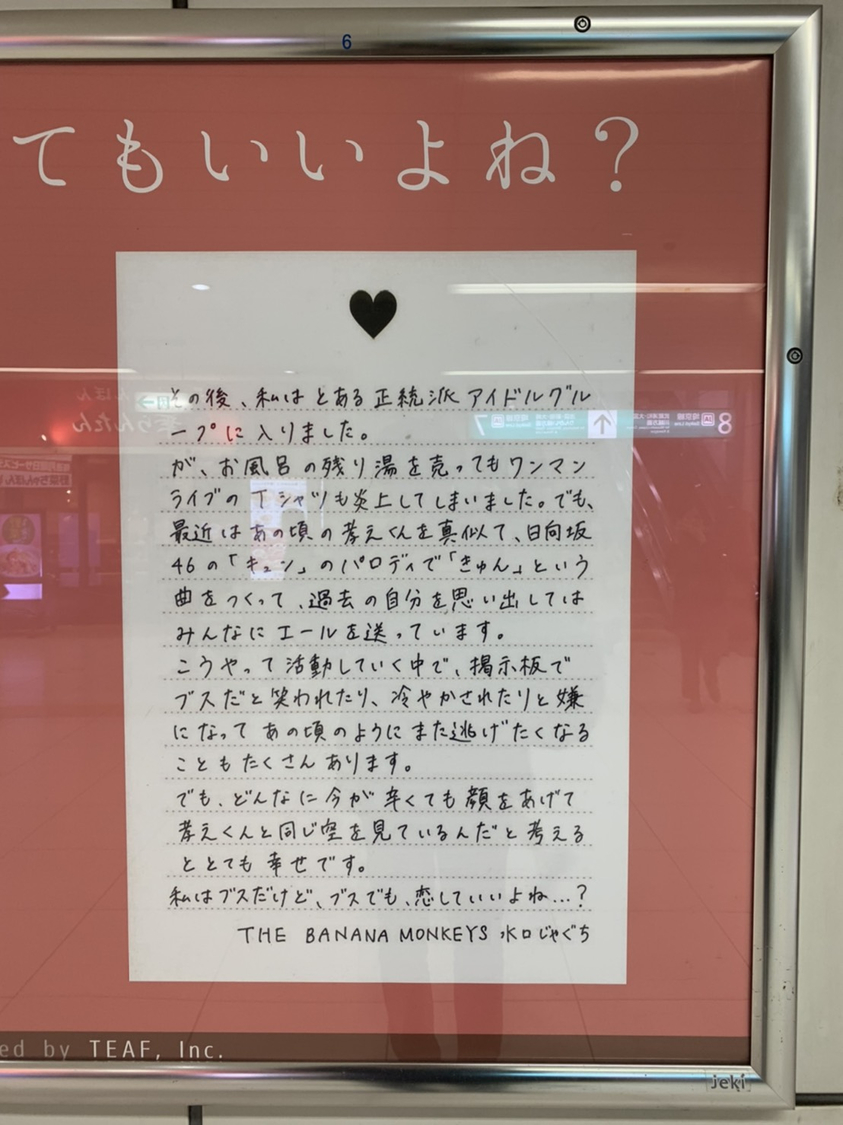 6
てもいいよね?
♥
その後、私はとある正統派アイドルグル
ープに入りました。
が、お風呂の残り湯を売ってもワンマン
ライブのTシャツも炎上してしまいました。でも、
最近はあの頃の孝えくんを真似て、日向坂
46の「キュン」のパロディで「きゅん」という
曲をつくって、過去の自分を思い出しては
みんなにエールを送っています。
こうやって活動していく中で、掲示板で
ブスだと笑われたり、冷やかされたりと嫌
になってあの頃のようにまた逃げたくなる
こともたくさんあります。
でも、どんなに今が辛くても顔をあげて
孝えくんと同じ空を見ているんだと考える
ととても幸せです。
私はブスだけど、ブスでも、恋していいよね…?
THE BANANA MONKEYS 水口じゃぐち
ed by TEAF, Inc.
jeki